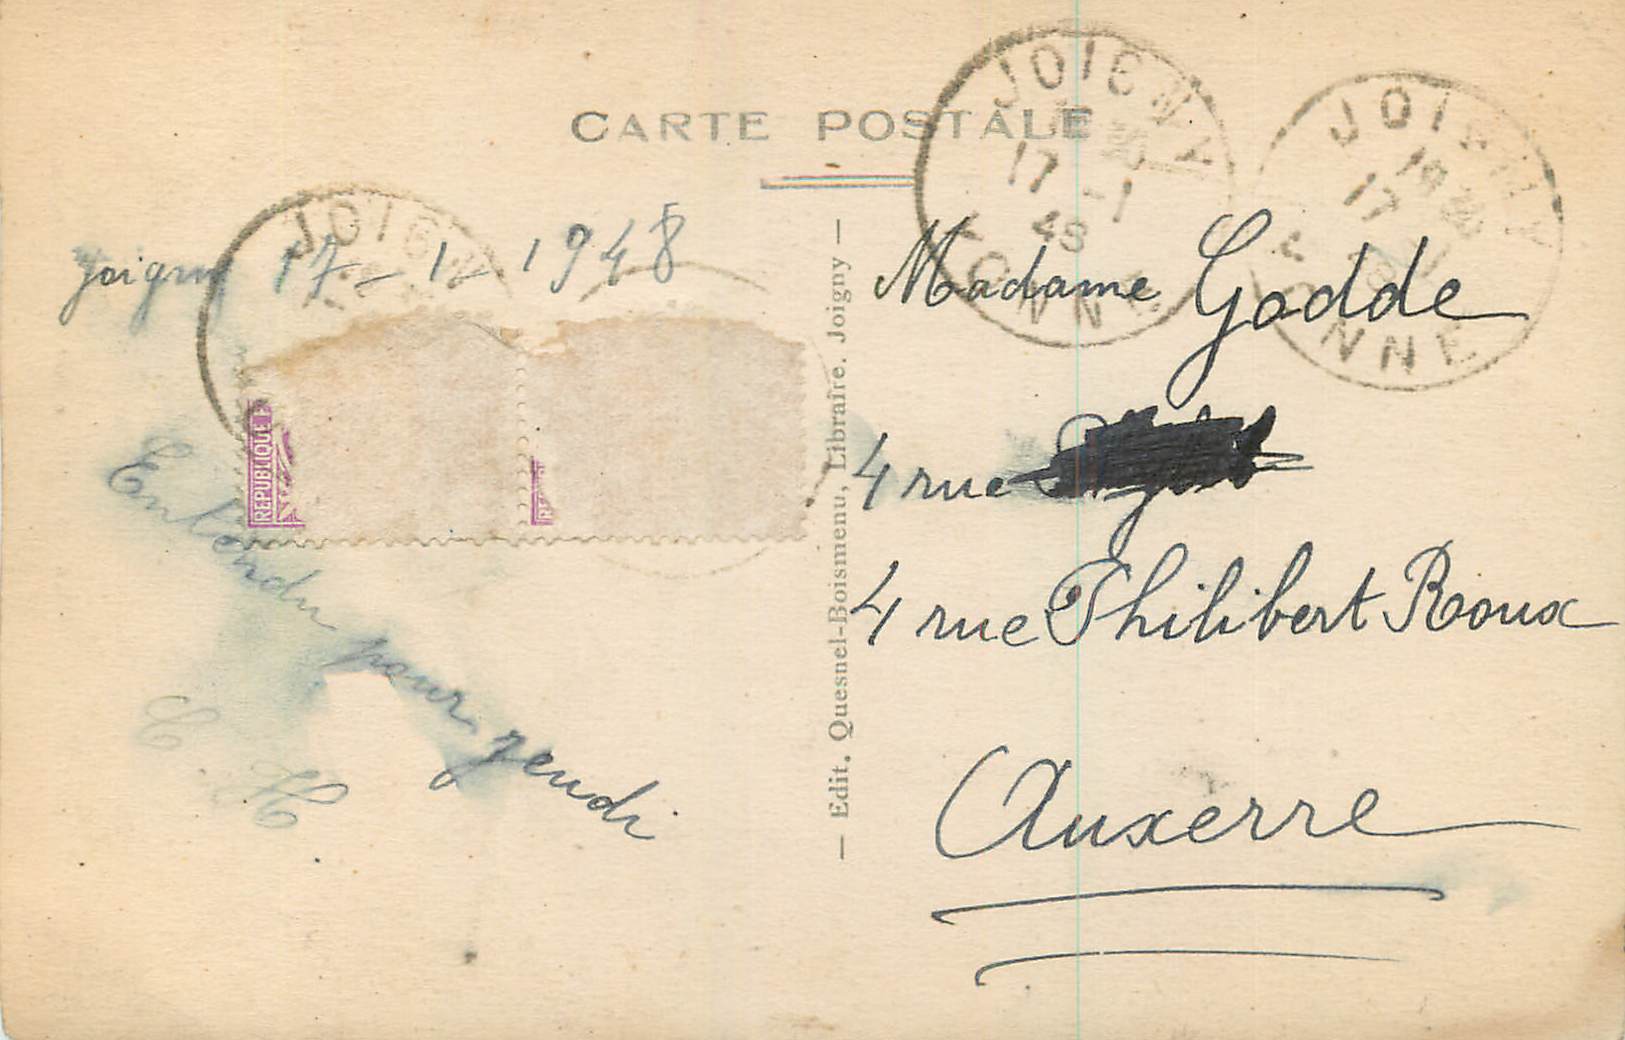 CARTE POSTALE
JOIGNY
17 -1
48
YONNE
JOIGNY
19
17 -1
48
YONNE
JOIGNY
Joigny 17 - 1 - 1948
REPUBLIQUE F
RE
Entendu pour jeudi
C. H
— Edit. Quesnel-Boismenu, Libraire. Joigny —
Madame Godde
4 rue
4 rue Philibert Roux
Auxerre